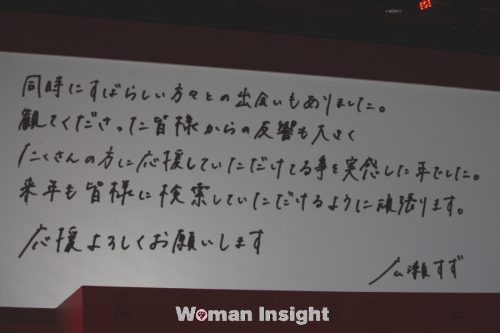 同時にすばらしい方々との出会いもありました。
観てくださった皆様からの反響も大きく
たくさんの方に応援していただけてる事を実感した年でした。
来年も皆様に検索していただけるように頑張ります。
応援よろしくお願いします
広瀬すず
Woman Insight